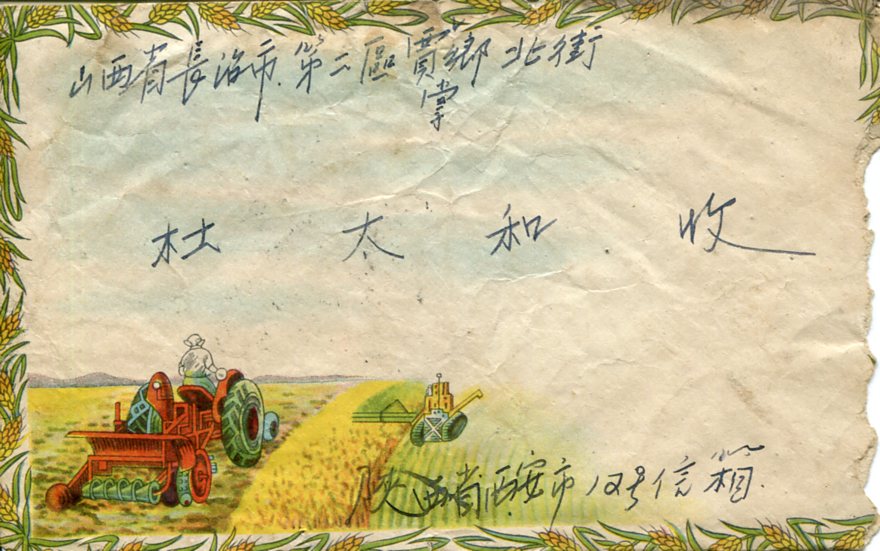 山西省長治市第二區賈掌鄉北街
杜太和收
陝西省西安市12号信箱